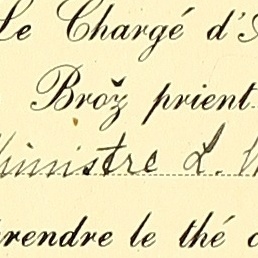 Le Chargé d'
Brož prient
Ministre L.
prendre le thé